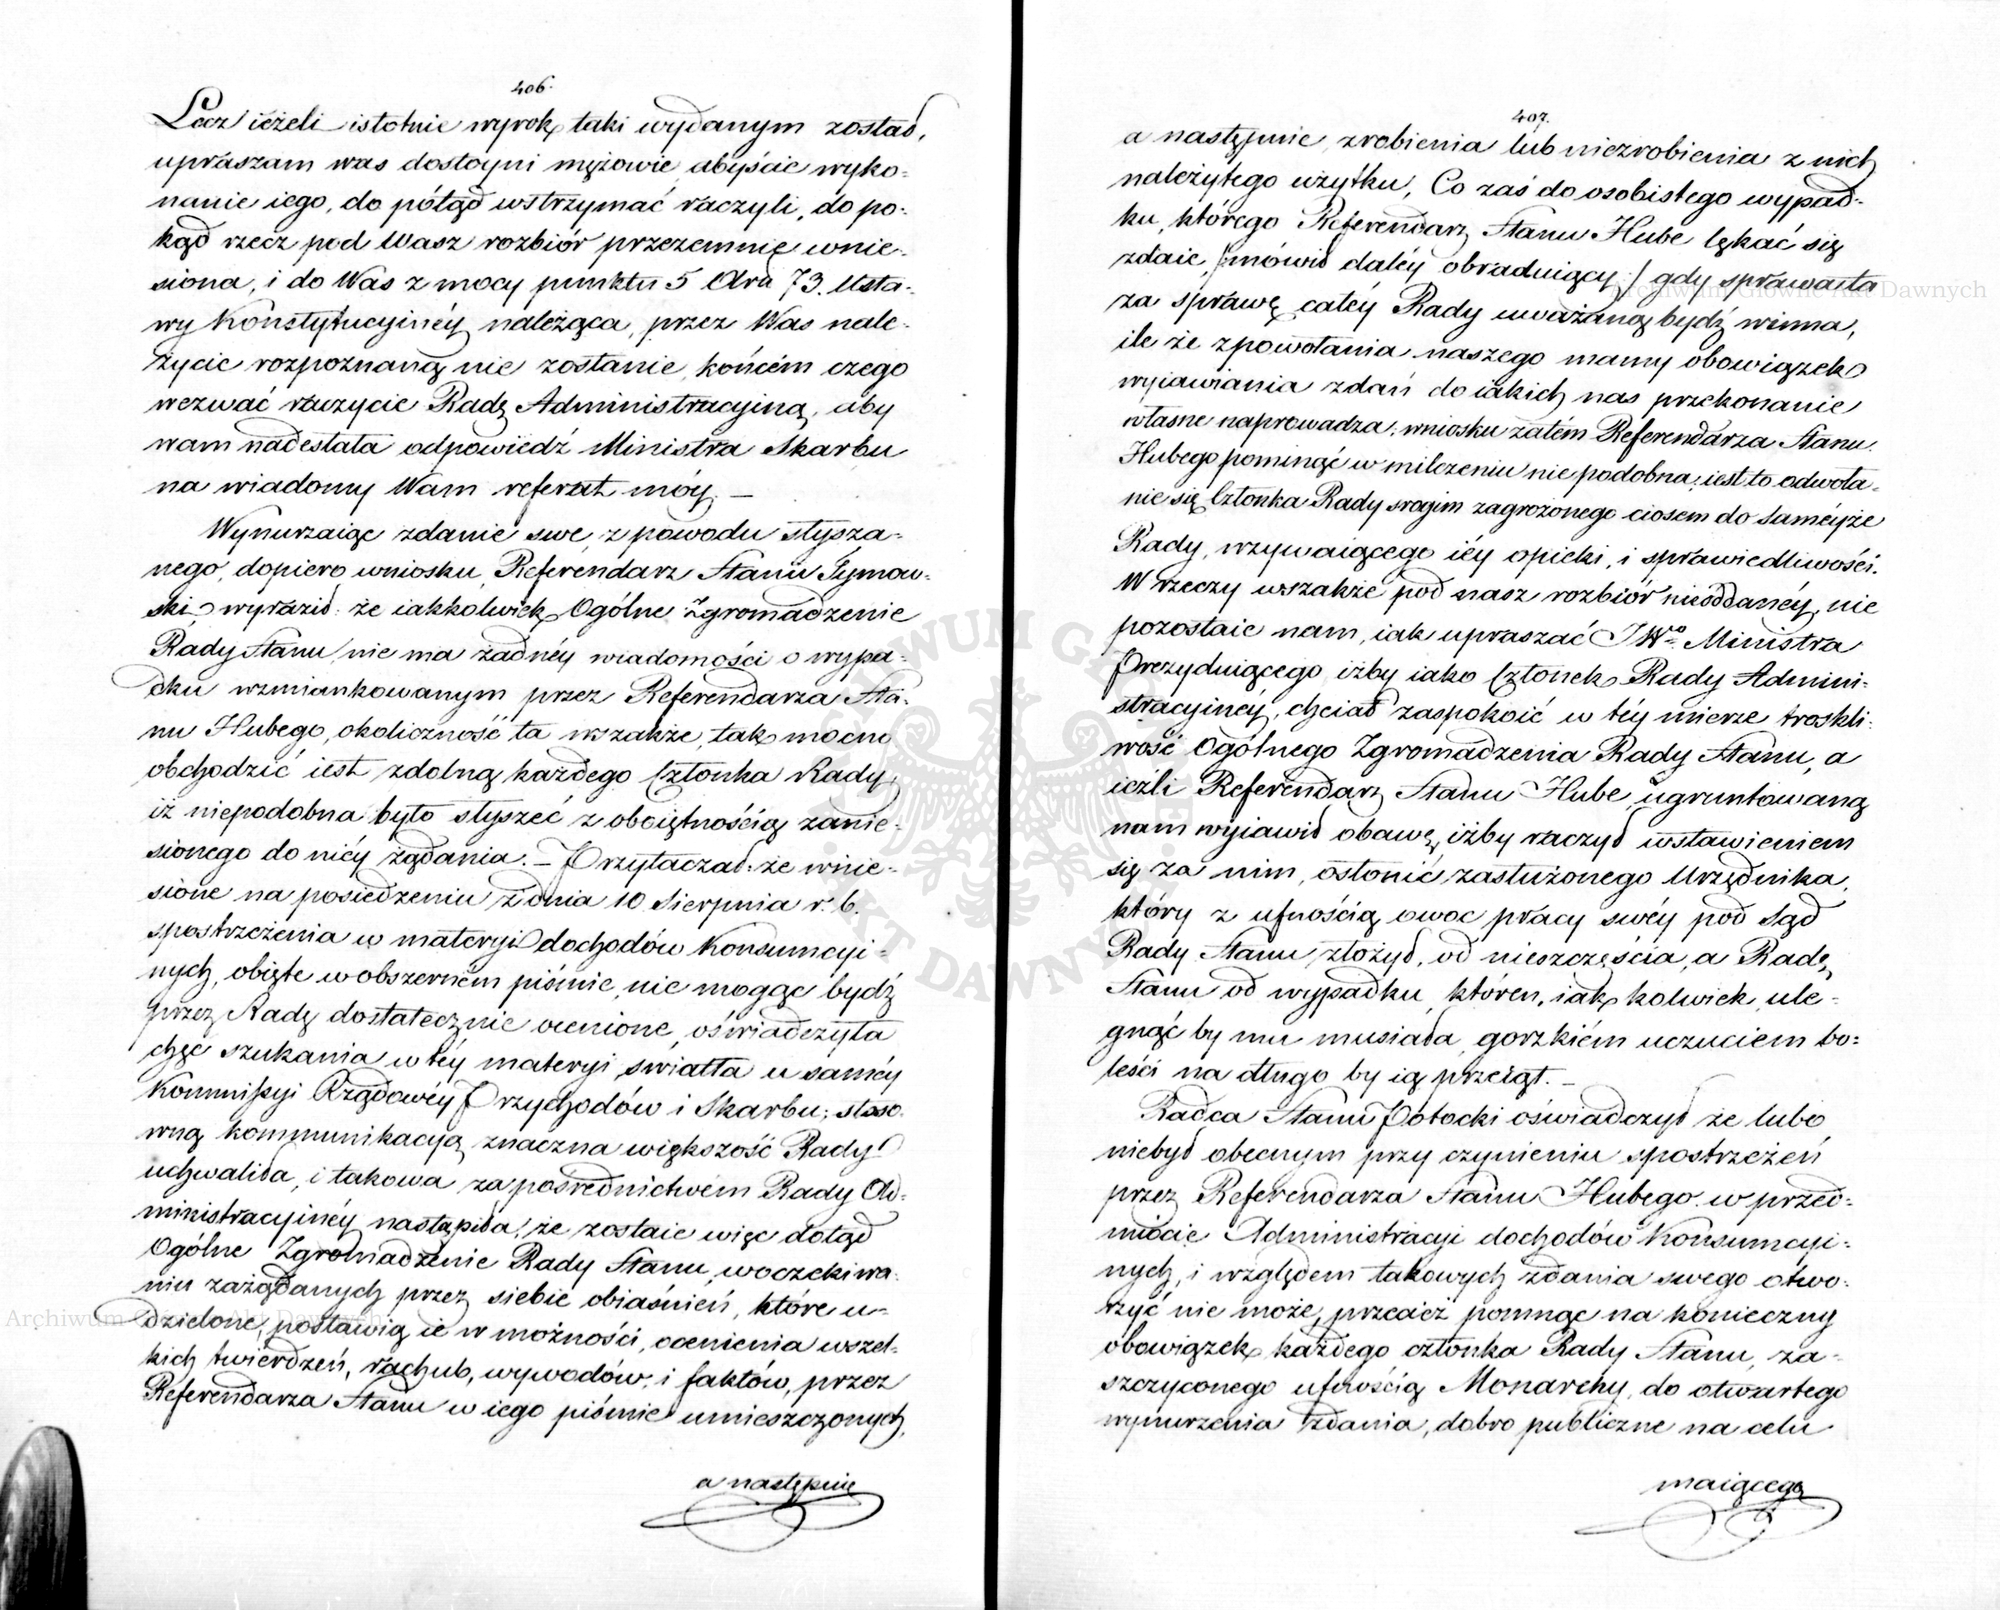 406.
Lecz ieżeli istotnie wyrok taki wydanym został,
upraszam was dostoyni mężowie, abyście wyko-
nanie iego, do pótąd wstrzymać raczyli, do po-
kąd rzecz pod Wasz rozbiór przezemnie wnie-
siona, i do Was z mocy punktu 5 Artu 73. Usta-
wy Konstytucyinéy należąca, przez Was nale-
życie rozpoznaną nie zostanie, końcém czego
wezwać raczycie Radę Administracyiną, aby
wam nadesłała odpowiedź Ministra Skarbu
na wiadomy Wam referat móy. —
Wynurzaiąc zdanie swe, z powodu słysza-
nego, dopiero, wniosku, Referendarz Stanu Szymow-
ski, wyraził: że iakkolwiek Ogólne Zgromadzenie
Rady Stanu, nie ma żadnéy wiadomości o wypa-
dku wzmiankowanym przez Referendarza Sta-
nu Hubego, okoliczność ta wszakże, tak mocno
obchodzić iest zdolną każdego Członka Rady,
iż niepodobna było słyszeć z oboiętnością zanie-
sionego do niéy żądania. — Przytaczał: że wnie-
sione na posiedzeniu z dnia 10 Sierpnia r. b.
spostrzeżenia w materyi dochodów Konsumcyi-
nych, obięte w obszerném piśmie, nie mogąc bydź
przez Radę dostatecznie ocenione, oświadczyła
chęć szukania w téy materyi światła u saméy
Kommissyi Rządowéy Przychodów i Skarbu; stoso-
wną kommunikacyą znaczna większość Rady
uchwaliła, i takowa za pośrednictwem Rady Ad-
ministracyinéy nastąpiła; że zostaie więc dotąd
Ogólne Zgromadzenie Rady Stanu, w oczekiwa-
niu zażądanych przez siebie obiaśnień, które u-
dzielone, postawią ie w możności, ocenienia wszel-
kich twierdzeń, rachub, wywodów, i faktów, przez
Referendarza Stanu w iego piśmie umieszczonych,
a następnie
407.
a następnie, zrobienia lub niezrobienia z nich
należytego użytku, Co zaś do osobistego wypad-
ku, którego Referendarz Stanu Hube lękać się
zdaie, /:mówił daléy obraduiący:/ gdy sprawa ta
za sprawę całéy Rady uważaną bydź winna,
ile że z powołania naszego mamy obowiązek
wyiawiania zdań do iakich nas przekonanie
własne naprowadza; wniosku zatém Referendarza Stanu
Hubego pominąć w milczeniu nie podobna; iest to odwoła-
nie się Członka Rady srogim zagrożonego ciosem do saméyże
Rady, wzywaiącego iéy opieki, i sprawiedliwości.
W rzeczy wszakże pod nasz rozbiór nieoddanéy, nie
pozostaie nam, iak upraszać JWo Ministra
Prezyduiącego, iżby iako Członek Rady Admini-
stracyinéy, chciał zaspokoić w téy mierze troskli-
wość Ogólnego Zgromadzenia Rady Stanu, a
ieżli Referendarz Stanu Hube, ugruntowaną
nam wyiawił obawę, iżby raczył wstawieniem
się za nim, osłonić zasłużonego Urzędnika,
który z ufnością owoc pracy swéy pod Sąd
Rady Stanu złożył, od nieszczęścia, a Radę
Stanu od wypadku, któren, iak kolwiek, ule-
gnąć by mu musiała, gorzkiém uczuciem bo-
leści na długo by ią przeiął. —
Radca Stanu Potocki oświadczył że lubo
niebył obecnym przy czynieniu spostrzeżeń
przez Referendarza Stanu Hubego w przed-
miocie Administracyi dochodów Konsumcyi-
nych, i względem takowych zdania swego otwo-
rzyć nie może, przecież pomnąc na konieczny
obowiązek każdego członka Rady Stanu, za-
szczyconego ufnością Monarchy, do otwartego
wynurzenia zdania, dobro publiczne na celu
maiącego